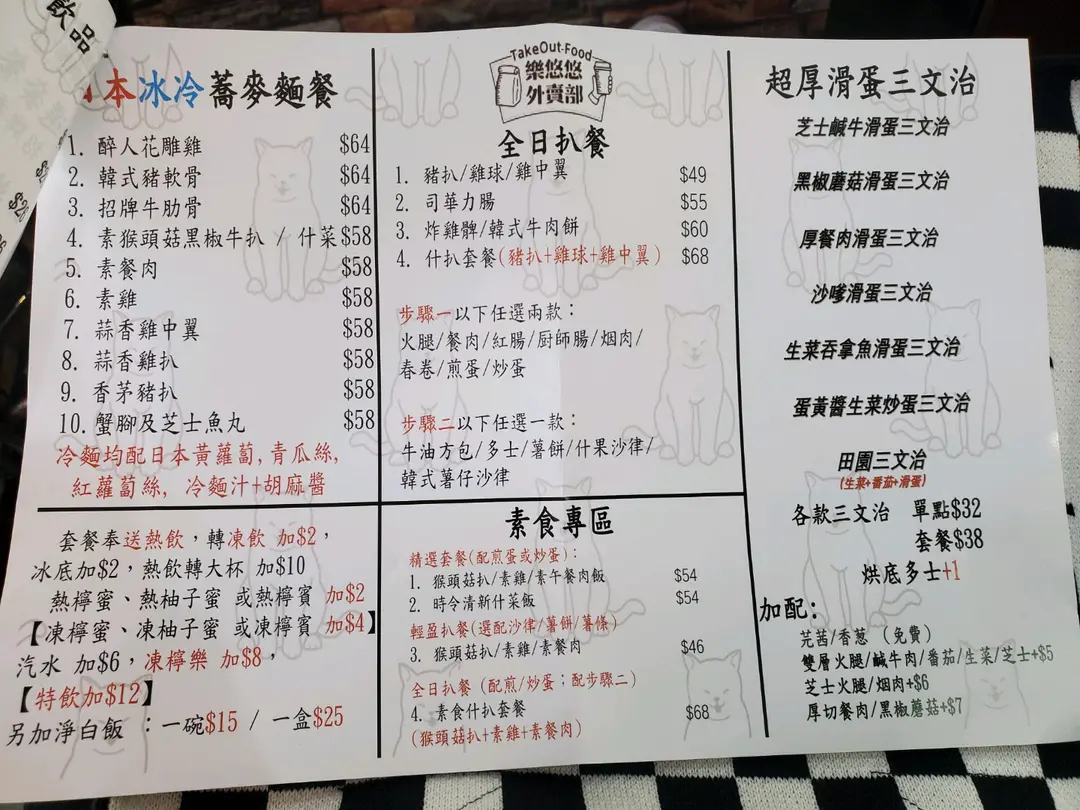 飲品
本冰冷蕎麥麵餐
1. 醉人花雕雞 $64
2. 韓式豬軟骨 $64
3. 招牌牛肋骨 $64
4. 素猴頭菇黑椒牛扒 / 什菜 $58
5. 素餐肉 $58
6. 素雞 $58
7. 蒜香雞中翼 $58
8. 蒜香雞扒 $58
9. 香茅豬扒 $58
10. 蟹腳及芝士魚丸 $58
冷麵均配日本黃蘿蔔,青瓜絲,
紅蘿蔔絲, 冷麵汁+胡麻醬
套餐奉送熱飲,轉凍飲 加$2,
冰底加$2,熱飲轉大杯 加$10
熱檸蜜、熱柚子蜜 或熱檸賓 加$2
【凍檸蜜、凍柚子蜜 或凍檸賓 加$4】
汽水 加$6,凍檸樂 加$8,
【特飲加$12】
另加淨白飯 :一碗$15 / 一盒$25
TakeOut-Food
樂悠悠
外賣部
全日扒餐
1. 豬扒/雞球/雞中翼 $49
2. 司華力腸 $55
3. 炸雞髀/韓式牛肉餅 $60
4. 什扒套餐(豬扒+雞球+雞中翼) $68
步驟一以下任選兩款:
火腿/餐肉/紅腸/厨師腸/烟肉/
春卷/煎蛋/炒蛋
步驟二以下任選一款:
牛油方包/多士/薯餅/什果沙律/
韓式薯仔沙律
素食專區
精選套餐(配煎蛋或炒蛋):
1. 猴頭菇扒/素雞/素午餐肉飯 $54
2. 時令清新什菜飯 $54
輕盈扒餐(選配沙律/薯餅/薯條)
3. 猴頭菇扒/素雞/素餐肉 $46
全日扒餐 (配煎/炒蛋;配步驟二)
4. 素食什扒套餐 $68
(猴頭菇扒+素雞+素餐肉)
超厚滑蛋三文治
芝士鹹牛滑蛋三文治
黑椒蘑菇滑蛋三文治
厚餐肉滑蛋三文治
沙嗲滑蛋三文治
生菜吞拿魚滑蛋三文治
蛋黃醬生菜炒蛋三文治
田園三文治
(生菜+番茄+滑蛋)
各款三文治 單點$32
套餐$38
烘底多士+1
加配:
芫茜/香蔥 (免費)
雙層火腿/鹹牛肉/番茄/生菜/芝士+$5
芝士火腿/烟肉+$6
厚切餐肉/黑椒蘑菇+$7